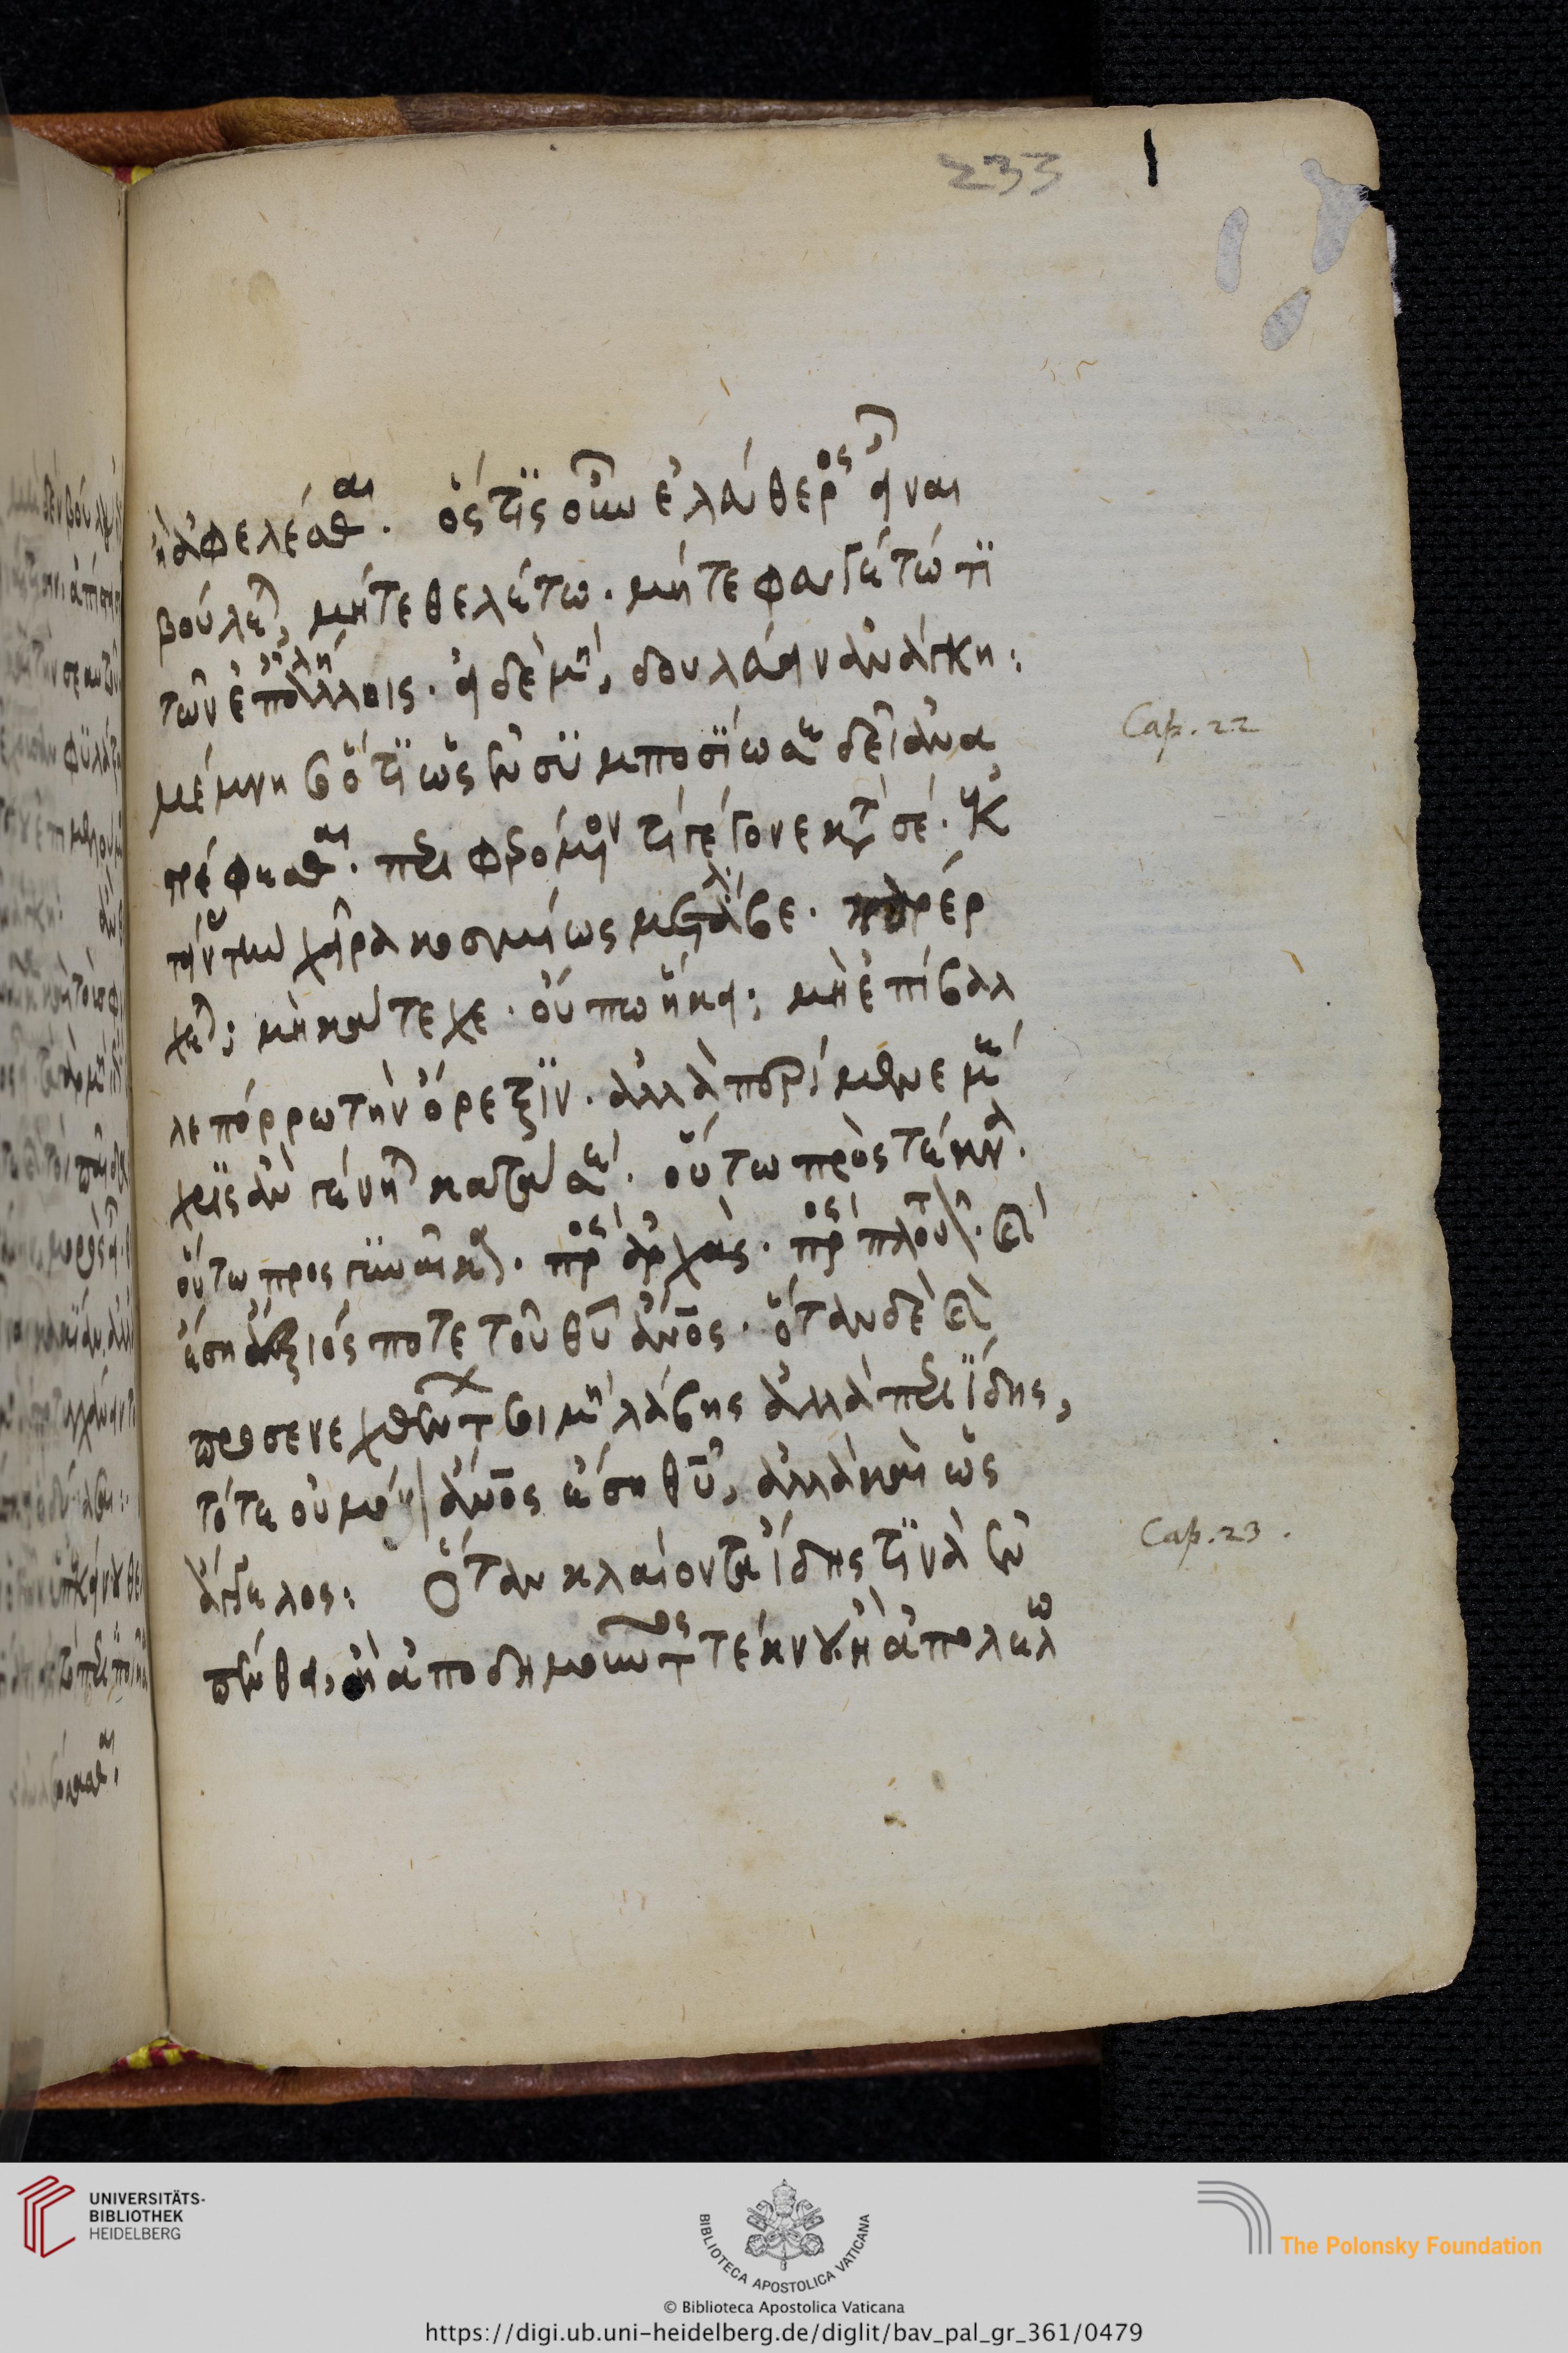 233
ἢ ἀφελέσθαι. ὅστις οὖν ἐλεύθερος εἶναι
βούλεται, μήτε θελέτω. μήτε φευγέτω τι
τῶν ἐπ' ἄλλοις. εἰ δὲ μὴ, δουλεύειν ἀνάγκη:
Cap. 22
μέμνησο ὅτι ὡς ἐν συμποσίω ἀεὶ δεῖ ἀνα
στρέφεσθαι. περιφερόμενον τί γέγονε κατὰ σέ. ἐκ
τείνας τὴν χεῖρα κοσμίως μετάλαβε. παρέρ
χεται; μὴ κάτεχε. οὔπω ἥκει; μὴ ἐπίβαλ
λε πόρρω τὴν ὄρεξιν. ἀλλὰ περίμενε μέ
χρις ἂν γένηται κατὰ σέ. οὕτω πρὸς τέκνα.
οὕτω προς γυναῖκα. πρὸς ἀρχὰς. πρὸς πλοῦτον. καὶ
ἔση ἄξιός ποτε τοῦ θυ ἄνος. ὅταν δὲ καὶ
προσενεχθέντων σοι μὴ λάβης ἀλλὰ περιίδης,
τότε οὐ μόνον ἄνος ἔση θυ, ἀλλὰ καὶ ὡς
Cap. 23.
ἄγγελος: Ὅταν κλαίοντα ἴδης τινὰ ἐν
πένθει, ἢ ἀποδημοῦντος τέκνου ἢ ἀπολωλ
UNIVERSITÄTS-
BIBLIOTHEK
HEIDELBERG
BIBLIOTECA APOSTOLICA VATICANA
The Polonsky Foundation
© Biblioteca Apostolica Vaticana
https://digi.ub.uni-heidelberg.de/diglit/bav_pal_gr_361/0479